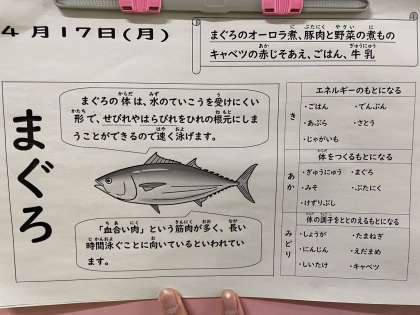 4月17日(月)
まぐろのオーロラ煮、豚肉と野菜の煮もの
キャベツの赤じそあえ、ごはん、牛乳
まぐろ
まぐろの体は、水のていこうを受けにくい
形で、せびれやはらびれをひれの根元にしま
うことができるので速く泳げます。
「血合い肉」という筋肉が多く、長い
時間泳ぐことに向いているといわれてい
ます。
き
エネルギーのもとになる
・ごはん ・でんぷん
・あぶら ・さとう
・じゃがいも
あか
体をつくるもとになる
・ぎゅうにゅう ・まぐろ
・みそ ・ぶたにく
・けずりぶし
みどり
体の調子をととのえるもとになる
・しょうが ・たまねぎ
・にんじん ・えだまめ
・しいたけ ・キャベツ